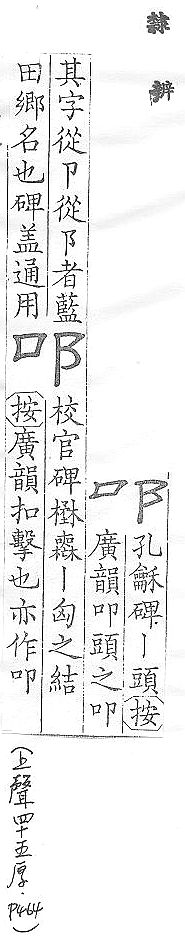 隸辨
叩
孔龢碑丨頭按
廣韻叩頭之叩
其字從卩從阝者藍
田鄉名也碑盖通用
叩
校官碑丨匈之結
按廣韻扣擊也亦作叩
(上聲四十五厚.P464)